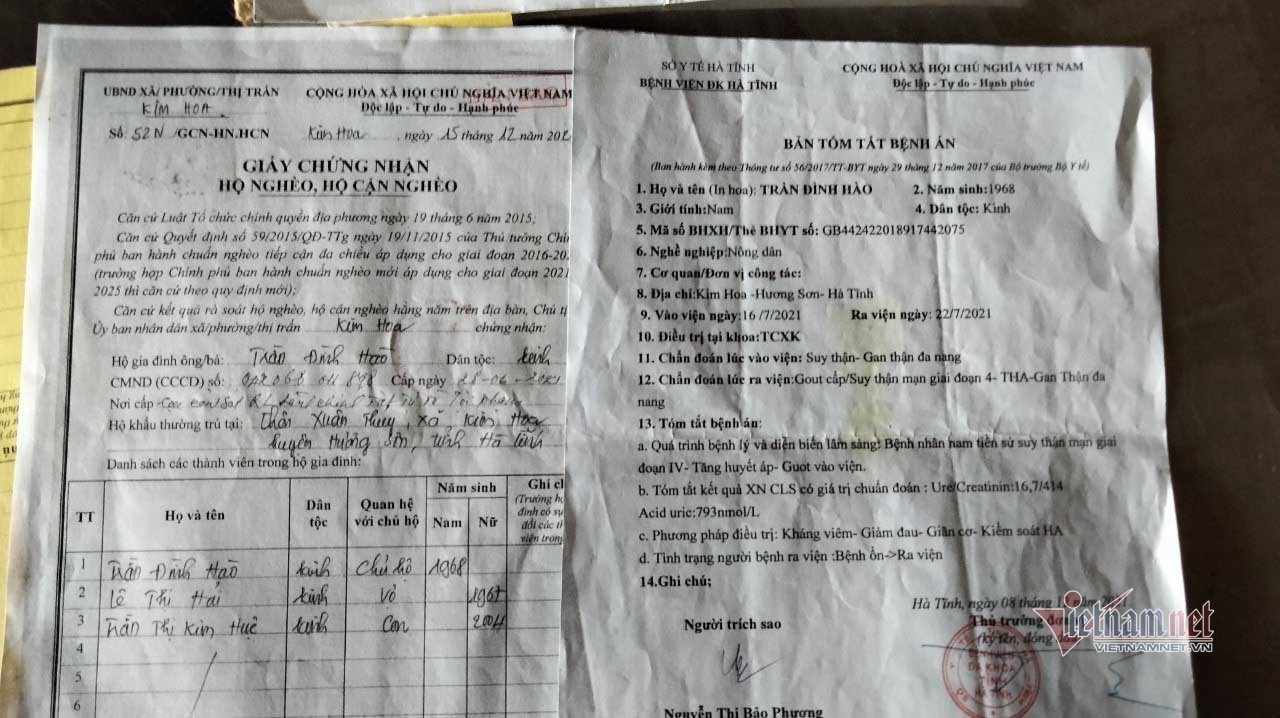 UBND XÃ/ PHƯỜNG/THỊ TRẤN
KIM HOA
CỘNG HÒA XÃ HỘI CHỦ NGHĨA VIỆT NAM
Độc lập - Tự do - Hạnh phúc
Số: 52N /GCN-HN.HCN
Kim Hoa, ngày 15 tháng 12 năm 202
GIẤY CHỨNG NHẬN
HỘ NGHÈO, HỘ CẬN NGHÈO
Căn cứ Luật Tổ chức chính quyền địa phương ngày 19 tháng 6 năm 2015;
Căn cứ Quyết định số 59/2015/QĐ-TTg ngày 19/11/2015 của Thủ tướng Chín
phủ ban hành chuẩn nghèo tiếp cận đa chiều áp dụng cho giai đoạn 2016-20
(trường hợp Chính phủ ban hành chuẩn nghèo mới áp dụng cho giai đoạn 2021
2025 thì căn cứ theo quy định mới);
Căn cứ kết quả rà soát hộ nghèo, hộ cận nghèo hằng năm trên địa bàn, Chủ t
Ủy ban nhân dân xã/phường/thị trấn Kim Hoa chứng nhận:
Hộ gia đình ông/bà: Trần Đình Hào Dân tộc: kinh
CMND (CCCD) số: Cấp ngày 28-06-2021
Nơi cấp
Hộ khẩu thường trú tại: thôn Xuân Thủy, xã Kim Hoa
huyện Hương Sơn, tỉnh Hà Tĩnh
Danh sách các thành viên trong hộ gia đình:
TT Họ và tên Dân tộc Quan hệ với chủ hộ Năm sinh Nam Nữ Ghi ch
(Trường h
đình có sự
đổi các t
viên trong
1 Trần Đình Hào kinh Chủ hộ 1968
2 Lê Thị Hải kinh Vợ 1967
3 Trần Thị Kim Huê kinh Con 2004
4
5
6
SỞ Y TẾ HÀ TĨNH
BỆNH VIỆN ĐK HÀ TĨNH
CỘNG HOÀ XÃ HỘI CHỦ NGHĨA VIỆT NAM
Độc lập - Tự do - Hạnh phúc
BẢN TÓM TẮT BỆNH ÁN
(Ban hành kèm theo Thông tư số 56/2017/TT-BYT ngày 29 tháng 12 năm 2017 của Bộ trưởng Bộ Y tế)
1. Họ và tên (In hoa): TRẦN ĐÌNH HÀO 2. Năm sinh:1968
3. Giới tính:Nam 4. Dân tộc: Kinh
5. Mã số BHXH/Thẻ BHYT số: GB442422018917442075
6. Nghề nghiệp:Nông dân
7. Cơ quan/Đơn vị công tác:
8. Địa chỉ:Kim Hoa -Hương Sơn- Hà Tĩnh
9. Vào viện ngày:16 /7/2021 Ra viện ngày: 22/7/2021
10. Điều trị tại khoa:TCXK
11. Chẩn đoán lúc vào viện: Suy thận- Gan thận đa nang
12. Chẩn đoán lúc ra viện:Gout cấp/Suy thận mạn giai đoạn 4- THA-Gan Thận đa
nang
13. Tóm tắt bệnh án:
a. Quá trình bệnh lý và diễn biến lâm sàng: Bệnh nhân nam tiền sử suy thận mạn giai
đoạn IV- Tăng huyết áp- Guot vào viện.
b. Tóm tắt kết quả XN CLS có giá trị chuẩn đoán : Ure/Creatinin:16,7/414
Acid uric:793nmol/L
c. Phương pháp điều trị: Kháng viêm- Giảm đau- Giãn cơ- Kiểm soát HA
d. Tình trạng người bệnh ra viện :Bệnh ổn->Ra viện
14.Ghi chú;
Hà Tĩnh, ngày 08 tháng
Người trích sao
Thủ trưởng đơn
(ký tên, đóng
ĐA KHOA
TỈNH
Nguyễn Thị Bảo Phương
Vietnamnet
VIETNAMNET.VN